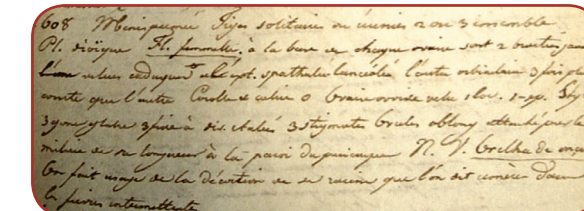 608 Menispermée Tiges solitaire ou réunies 2 ou 3 ensemble
Pl. dioique Fl. femelle. à la base de chaque ovaire sont 2 bractées
L'une velues caduques ellipt. spathulée lancéolée l'autre orbiculaire 3 fois plus
courte que l'autre Corolle et calice 0 Ovaire ovoide velu 1 loc. 1-sp. Style
3gone glabre 3fide à div. étalés 3 stigmates Ovules oblong attaché par le
milieu de sa longueur à la paroi du péricarpe N. V. Orelha de onça
On fait usage de la décoction de sa racine que l'on dit amère dans
les fièvres intermittentes